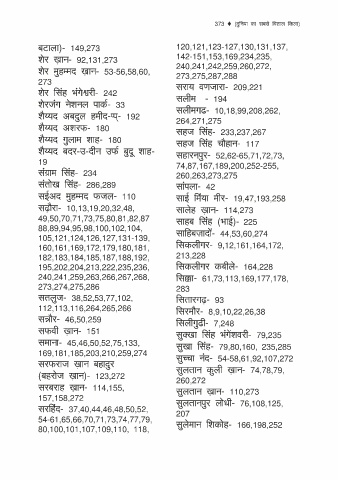 373 ♦ (दुनिया का सबसे विशाल किला)
बटाला)- 149,273
शेर ख़ान- 92,131,273
शेर मुहम्मद ख़ान- 53-56,58,60,
273
शेर सिंह भंगेश्वरी- 242
शेरजंग नेशनल पार्क- 33
शैय्यद अबदुल हमीद-प्य्- 192
शैय्यद अशरफ- 180
शैय्यद गुलाम शाह- 180
शैय्यद बदर-उ-दीन उर्फ बुदू शाह-
19
संग्राम सिंह- 234
संतोख सिंह- 286,289
सईअद मुहम्मद फजल- 110
सढ़ौरा- 10,13,19,20,32,48,
49,50,70,71,73,75,80,81,82,87
88,89,94,95,98,100,102,104,
105,121,124,126,127,131-139,
160,161,169,172,179,180,181,
182,183,184,185,187,188,192,
195,202,204,213,222,235,236,
240,241,259,263,266,267,268,
273,274,275,286
सतलुज- 38,52,53,77,102,
112,113,116,264,265,266
सन्नौर- 46,50,259
सफवी खान- 151
समाना- 45,46,50,52,75,133,
169,181,185,203,210,259,274
सरफराज खान बहादुर
(बहरोज खान)- 123,272
सरबराह ख़ान- 114,155,
157,158,272
सरहिंद- 37,40,44,46,48,50,52,
54-61,65,66,70,71,73,74,77,79,
80,100,101,107,109,110, 118,
120,121,123-127,130,131,137,
142-151,153,169,234,235,
240,241,242,259,260,272,
273,275,287,288
सराय वणजारा- 209,221
सलीम - 194
सलीमगढ- 10,18,99,208,262,
264,271,275
सहज सिंह- 233,237,267
सहज सिंह चौहान- 117
सहारनपुर- 52,62-65,71,72,73,
74,87,167,189,200,252-255,
260,263,273,275
सांपला- 42
साई मिंया मीर- 19,47,193,258
सालेह ख़ान- 114,273
साहब सिंह (भाई)- 225
साहिबज़ादों- 44,53,60,274
सिकलीगर- 9,12,161,164,172,
213,228
सिकलीगर कबीले- 164,228
सिक्का- 61,73,113,169,177,178,
283
सितारगढ़- 93
सिरमौर- 8,9,10,22,26,38
सिलीगुढी- 7,248
सुक्खा सिंह भंगेशवरी- 79,235
सुखा सिंह- 79,80,160, 235,285
सुच्चा नंद- 54-58,61,92,107,272
सुलतान कुली ख़ान- 74,78,79,
260,272
सुलतान ख़ान- 110,273
सुलतानपुर लोधी- 76,108,125,
207
सुलेमान शिकोह- 166,198,252